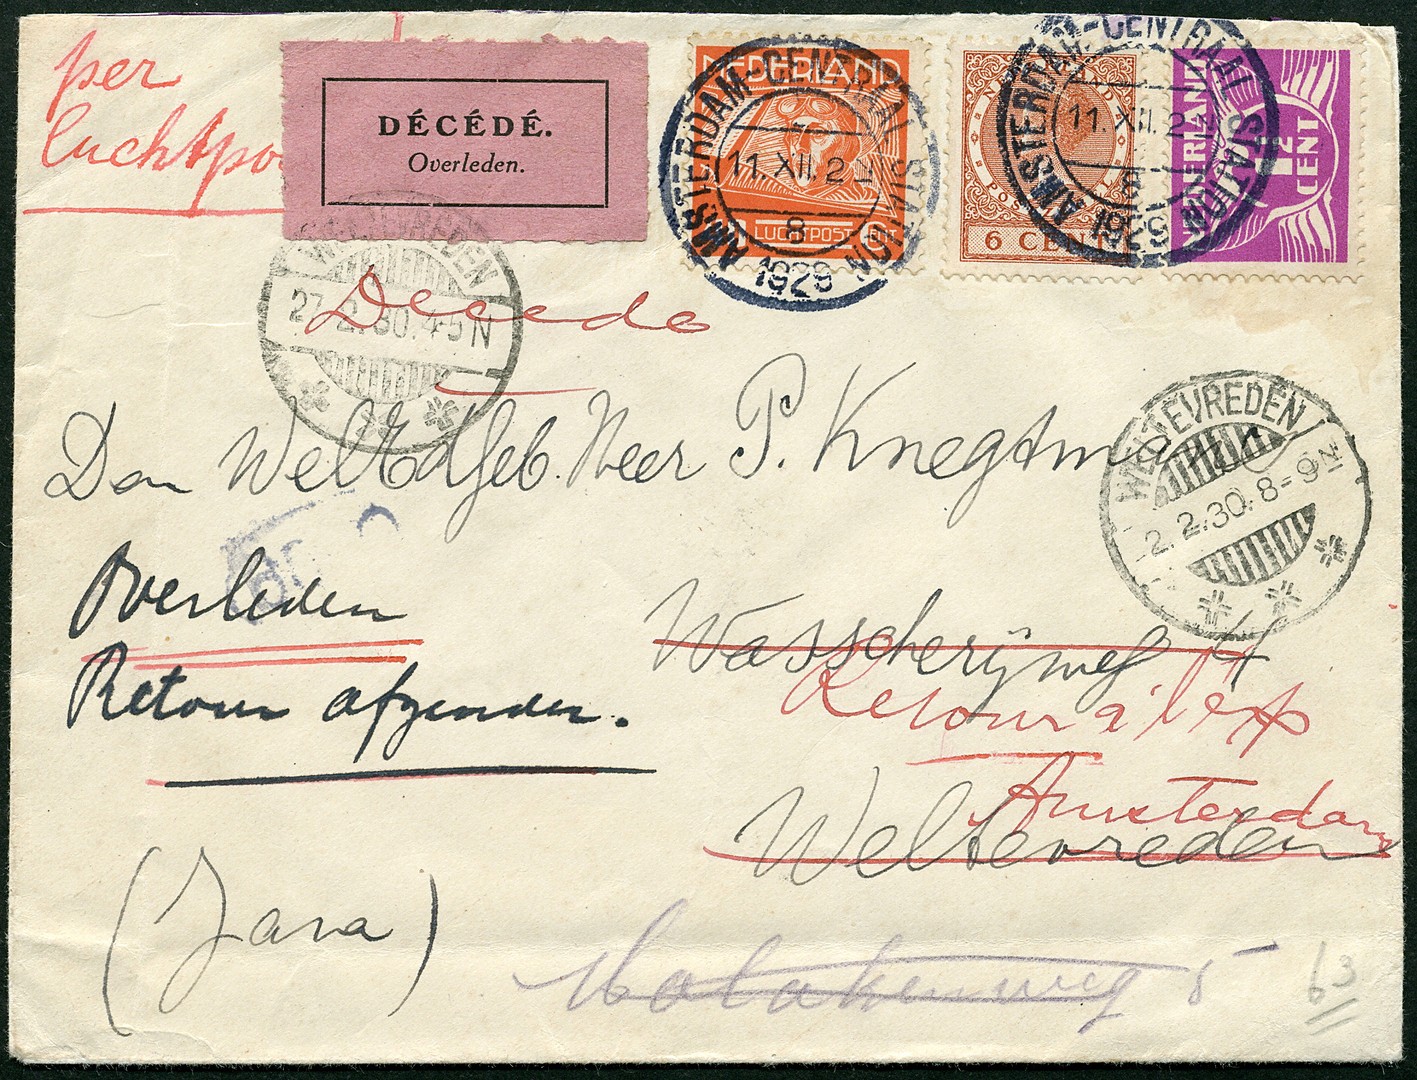 per
luchtpo
DÉCÉDÉ.
Overleden.
NEDERLAND
LUCHTPOST
AMSTERDAM-CENTRAAL STATION
11.XII.2
8
1929
6 CENT
AMSTERDAM-CENTRAAL STATION
11.XII.2
1929
NEDERLAND
1½ CENT
WELTEVREDEN
27.2.30.4-5N
Decede
WELTEVREDEN
2.2.30.8-9
Den WelEdGeb. Heer P. Knegtman
Overleden
Wasscherijweg 4
Retour afzender.
Retour à l'exp
Amsterdam
Weltevreden
(Java)
5
63